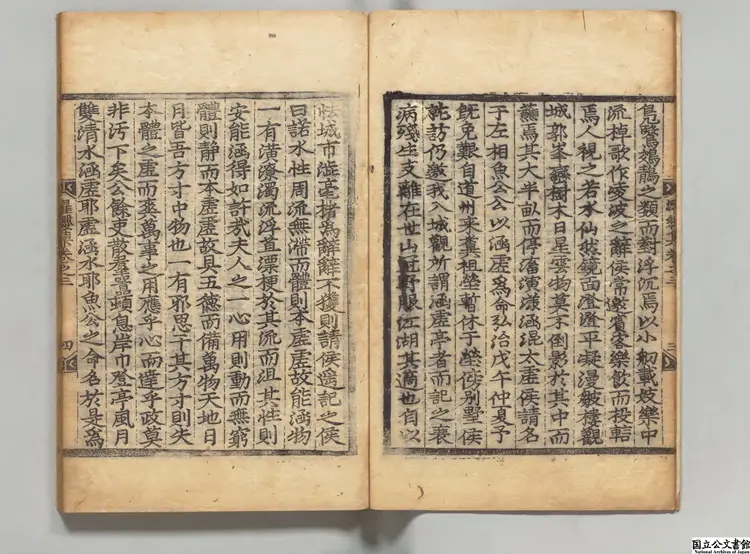 鳧鷖鵁鶄之類而對浮沉焉以小舠載妓樂中
流棹歌作凌波之辭侯常邀賓客樂飮而投轄
焉人視之若水仙然鏡面澄澄平凝漫皴樓觀
城郭峯巒樹木日星雲物莫不倒影於其中而
蘸焉其大半畝而停滀演漾涵混太虛侯請名
于左相魚公公以涵虛爲命弘治戊午仲夏予
旣免艱自道州來冀柤塋暫休于塋側別墅侯
訑訪仍邀我入城觀所謂涵虛亭者而記之衰
病殘生支離在世山冠野服江湖其適也自以
怯城市涖亭楷爲辭辭不獲則請侯遙記之侯
曰諾水性周流無滯而體則本虛虛故能涵物
一有潢潦濁流浮苴漂梗於其流而沮其性則
安能涵得如許哉夫人之一心用則動而無窮
體則靜而本虛虛故具五德而備萬物天地日
月皆吾方寸中物也一有邪思于其方寸則失
本體之虛而爽萬事之用應乎心而達乎政莫
非汚下矣公餘吏散羣囂頓息岸巾登亭風月
雙淸水涵虛耶虛涵水耶魚公之命名於是爲
三
四
国立公文書館
National Archives of Japan